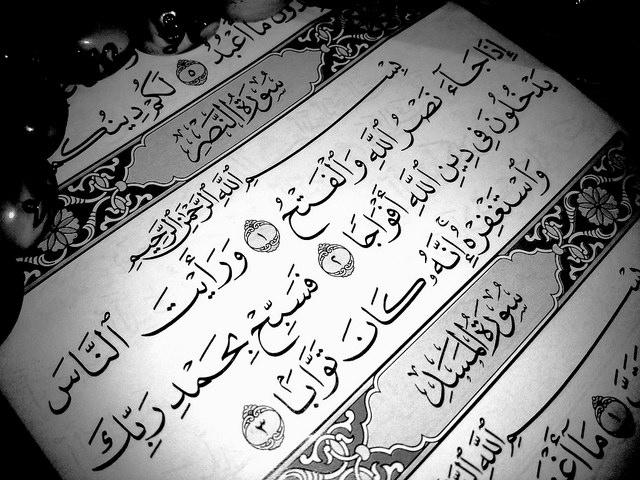 ـدُونَ مَآ أَعْبُدُ ٥ لَكُمْ دِينُكُـ
سُورَةُ النَّصْرِ
بِسْمِ ٱللَّهِ ٱلرَّحْمَٰنِ ٱلرَّحِيمِ
إِذَا جَآءَ نَصْرُ ٱللَّهِ وَٱلْفَتْحُ ١ وَرَأَيْتَ ٱلنَّاسَ
يَدْخُلُونَ فِى دِينِ ٱللَّهِ أَفْوَاجًا ٢ فَسَبِّحْ بِحَمْدِ رَبِّكَ
وَٱسْتَغْفِرْهُ إِنَّهُۥ كَانَ تَوَّابًۢا ٣
سُورَةُ المَسَدِ
بِسْمِ ٱللَّهِ
١ مَآ أَغْنَـ